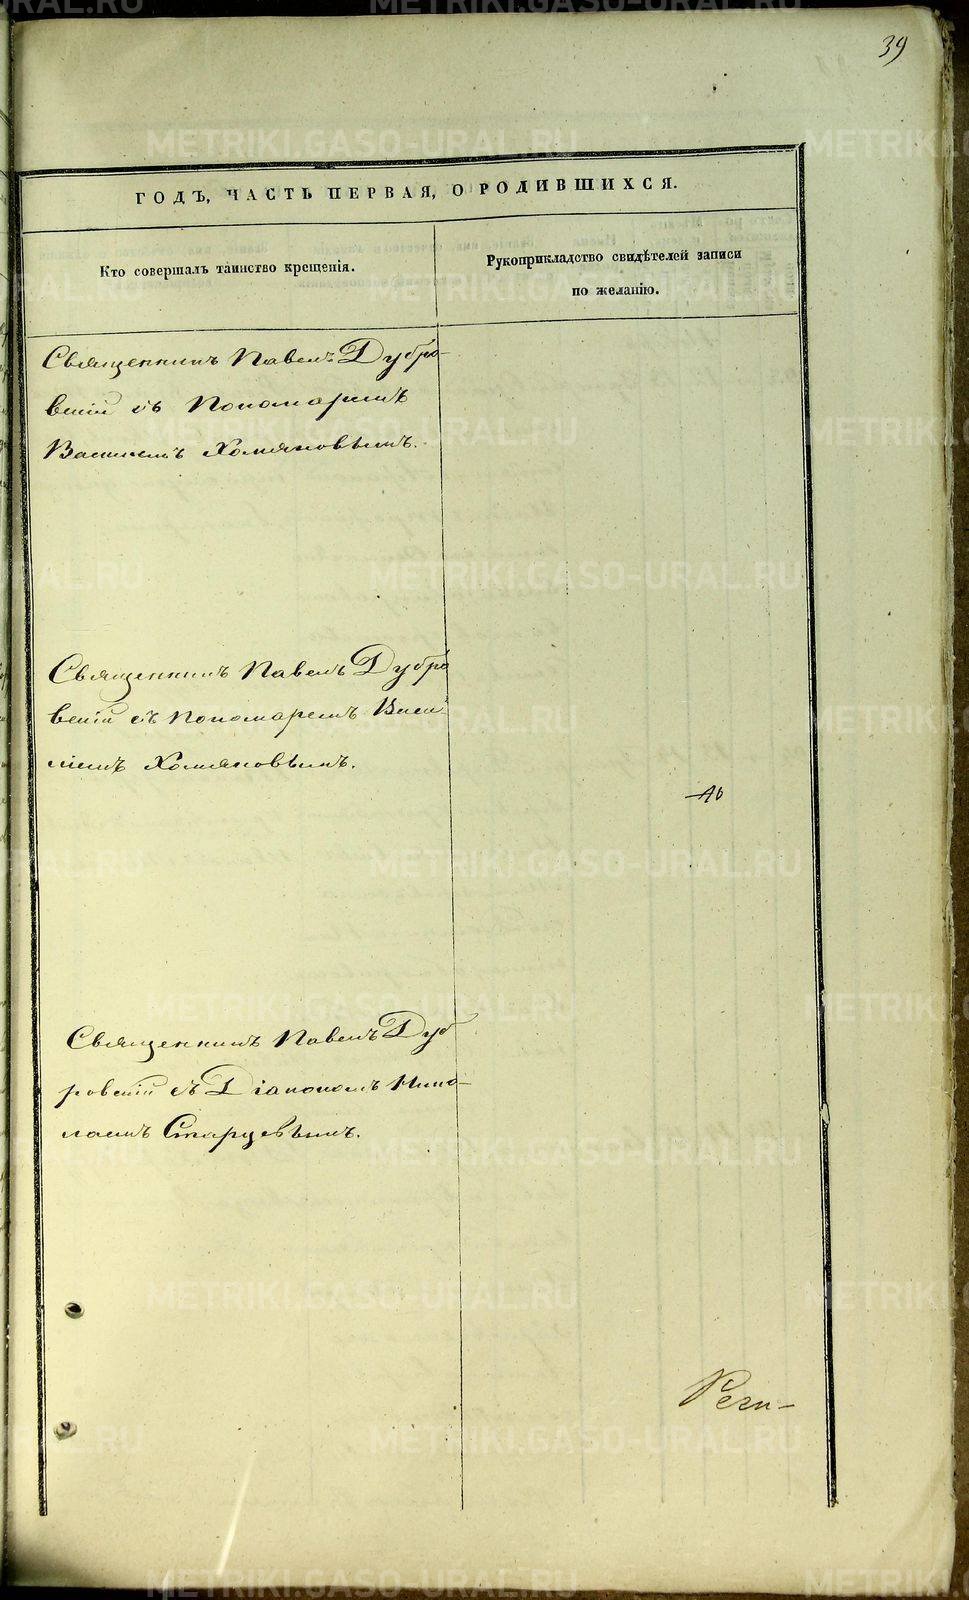 39
ГОДЪ, ЧАСТЬ ПЕРВАЯ, О РОДИВШИХСЯ.
Кто совершалъ таинство крещенія.
Рукоприкладство свидѣтелей записи
по желанію.
Священникъ Павелъ Дубро-
вскій съ Пономаремъ
Василіемъ Хомяковымъ.
Священникъ Павелъ Дубро
вскій съ Пономаремъ Васи-
ліемъ Хомяковымъ.
Священникъ Павелъ Дуб
ровскій съ Діакономъ Нико-
лаемъ Старцевымъ.
METRIKI.GASO-URAL.RU